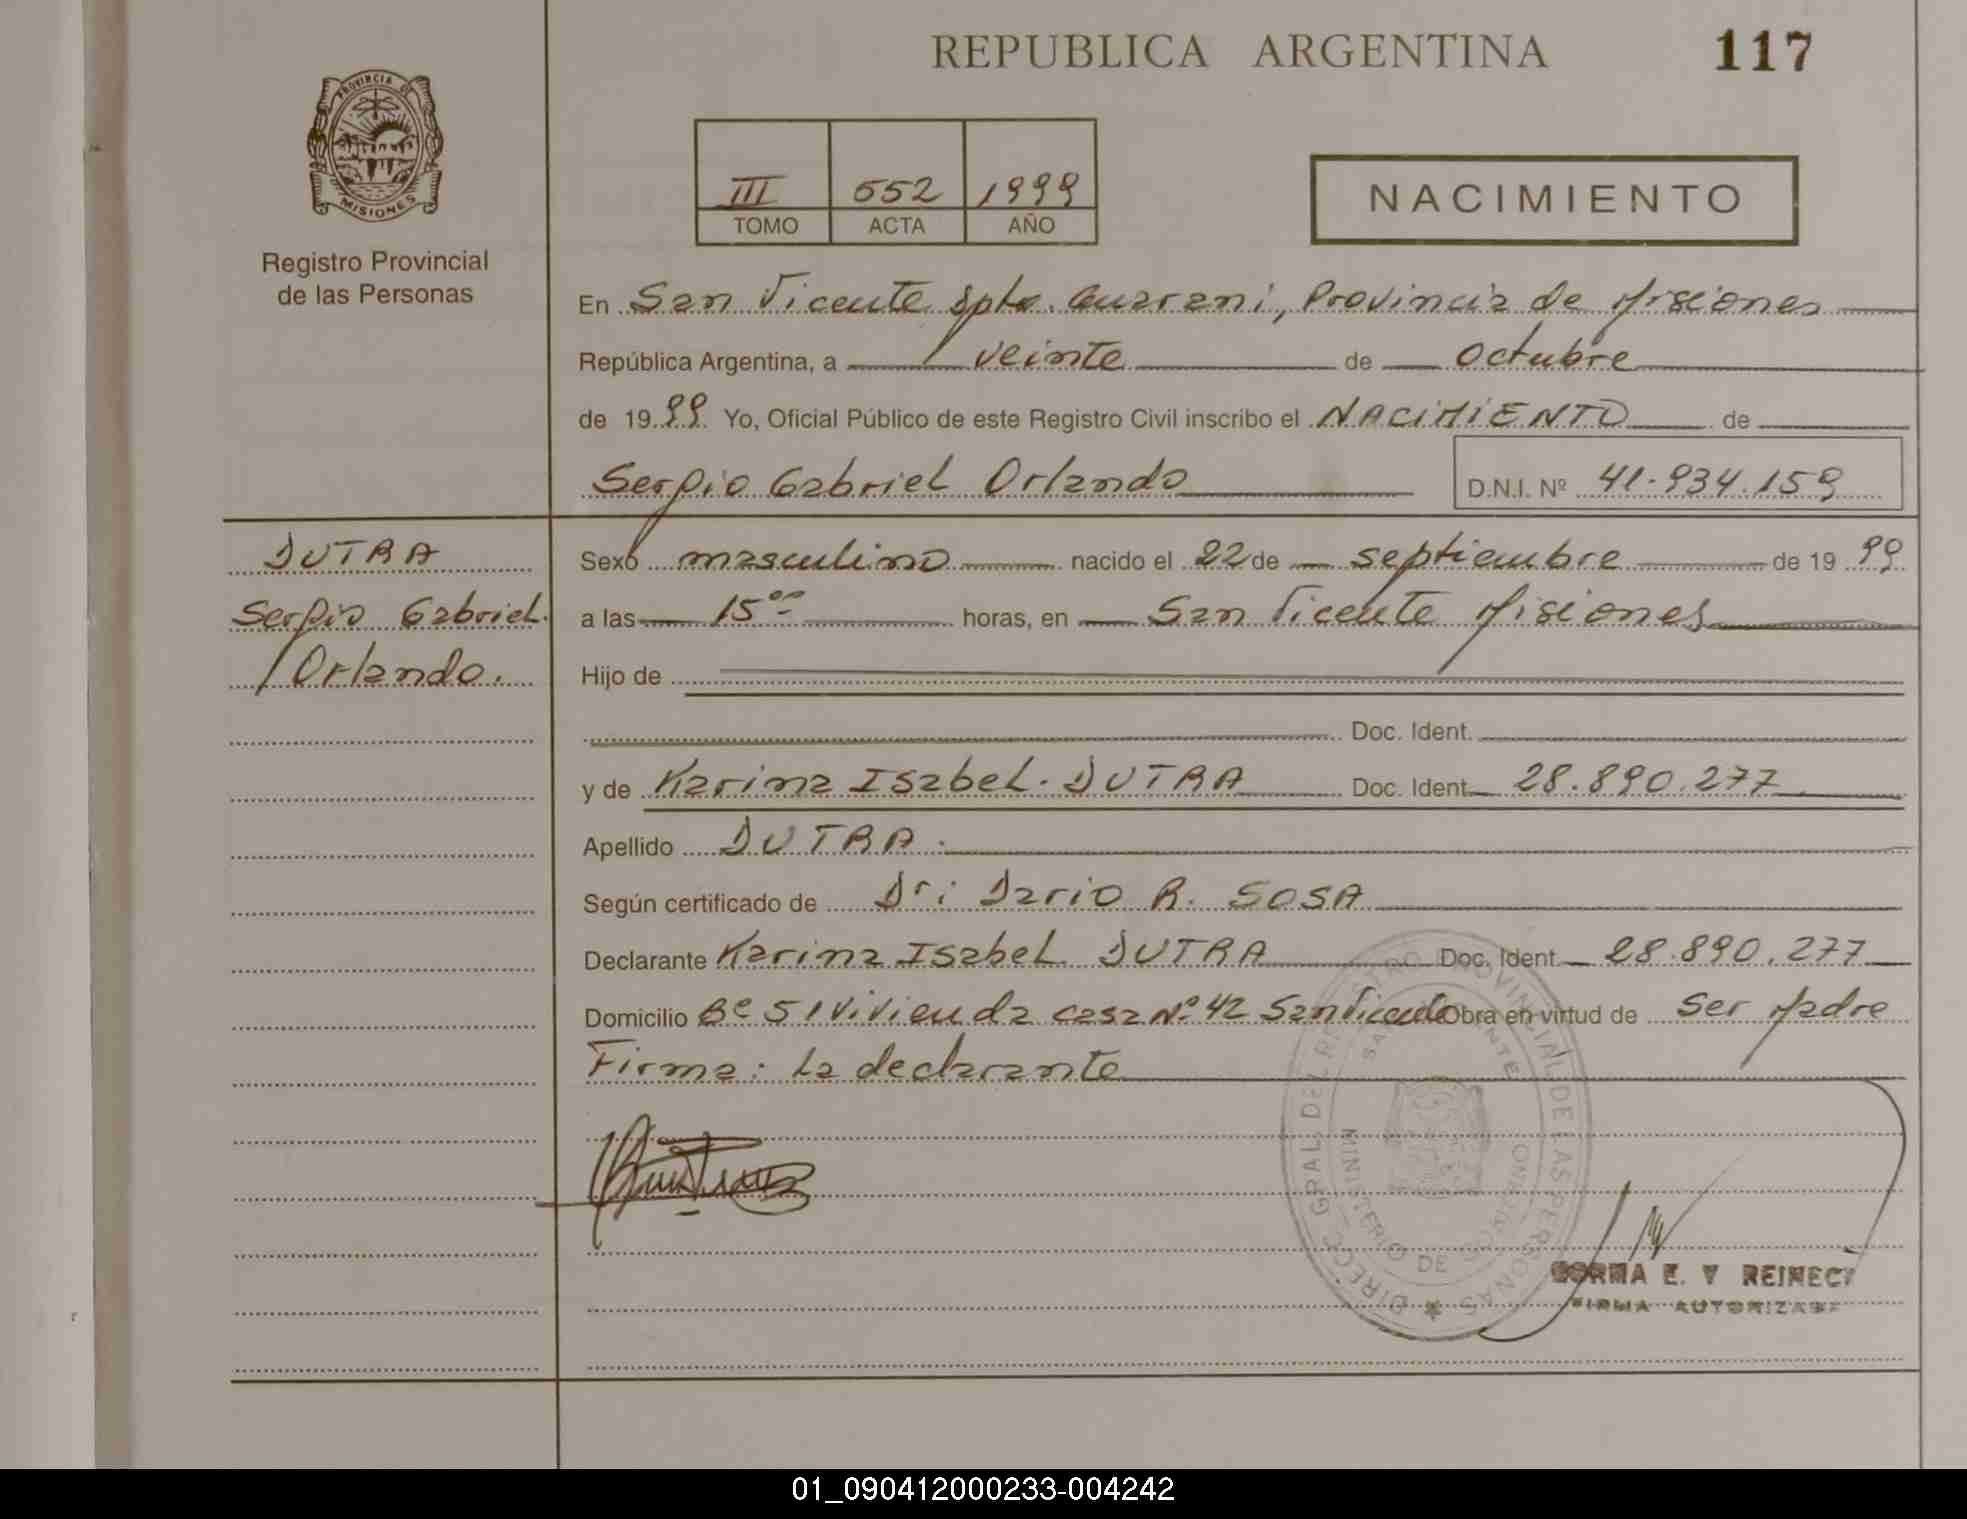 REPUBLICA ARGENTINA
117
PROVINCIA DE
MISIONES
Registro Provincial
de las Personas
III 552 1999
TOMO ACTA AÑO
NACIMIENTO
En San Vicente Dpto. Guarani, Provincia de Misiones
República Argentina, a veinte de Octubre
de 1999 Yo, Oficial Público de este Registro Civil inscribo el NACIMIENTO de
Sergio Gabriel Orlando
D.N.I. Nº 41.934.159
DUTRA
Sergio Gabriel
Orlando.
Sexo masculino nacido el 22 de septiembre de 1999
a las 15 00 horas, en San Vicente Misiones
Hijo de
Doc. Ident.
y de Karina Isabel. DUTRA Doc. Ident. 28.890.277
Apellido DUTRA.
Según certificado de Dr: Dario R. SOSA
Declarante Karina Isabel DUTRA Doc. Ident. 28.890.277
Domicilio Bº 51 Vivienda casa Nº 42 San Vicente Obra en virtud de Ser Madre
Firma: La declarante
DIRECC. GRAL. DEL REGISTRO PROVINCIAL DE LAS PERSONAS
SAN VICENTE
MINISTERIO DE GOBIERNO
E. V REINECK
FIRMA AUTORIZADA
01_090412000233-004242